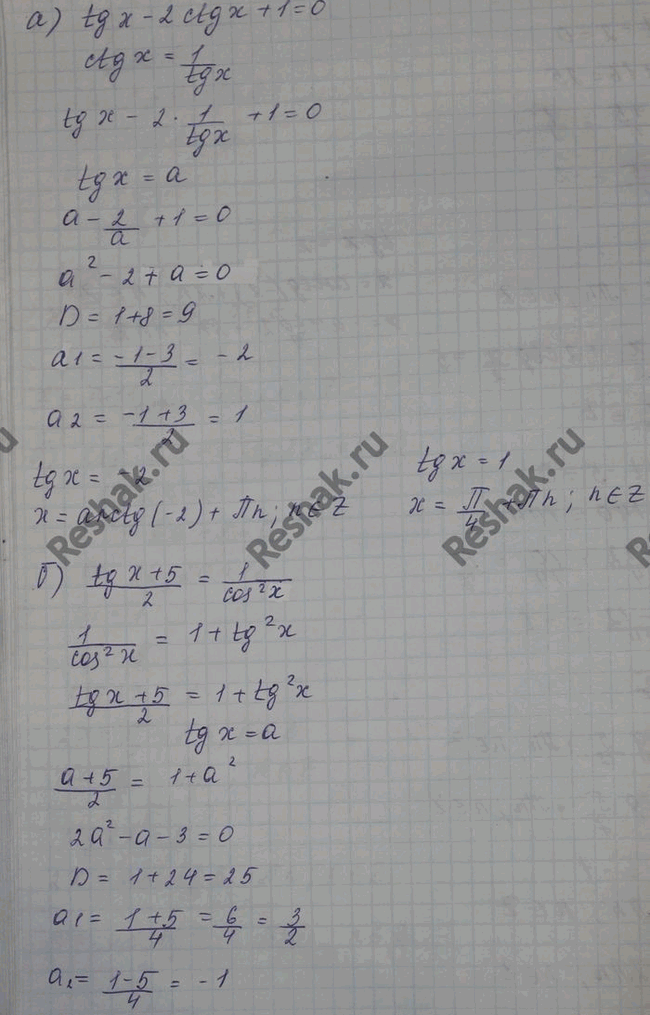 а) tg x - 2 ctg x + 1 = 0
ctg x = 1/tg x
tg x - 2 · 1/tg x + 1 = 0
tg x = a
a - 2/a + 1 = 0
a² - 2 + a = 0
D = 1 + 8 = 9
a1 = (-1-3)/2 = -2
a2 = (-1+3)/2 = 1
tg x = -2 tg x = 1
x = arctg(-2) + Пn; n∈Z x = П/4 + Пn; n∈Z
Reshak.ru Reshak.ru Reshak.ru
б) (tg x + 5)/2 = 1/cos²x
1/cos²x = 1 + tg²x
(tg x + 5)/2 = 1 + tg²x
tg x = a
(a + 5)/2 = 1 + a²
2a² - a - 3 = 0
D = 1 + 24 = 25
a1 = (1+5)/4 = 6/4 = 3/2
a2 = (1-5)/4 = -1